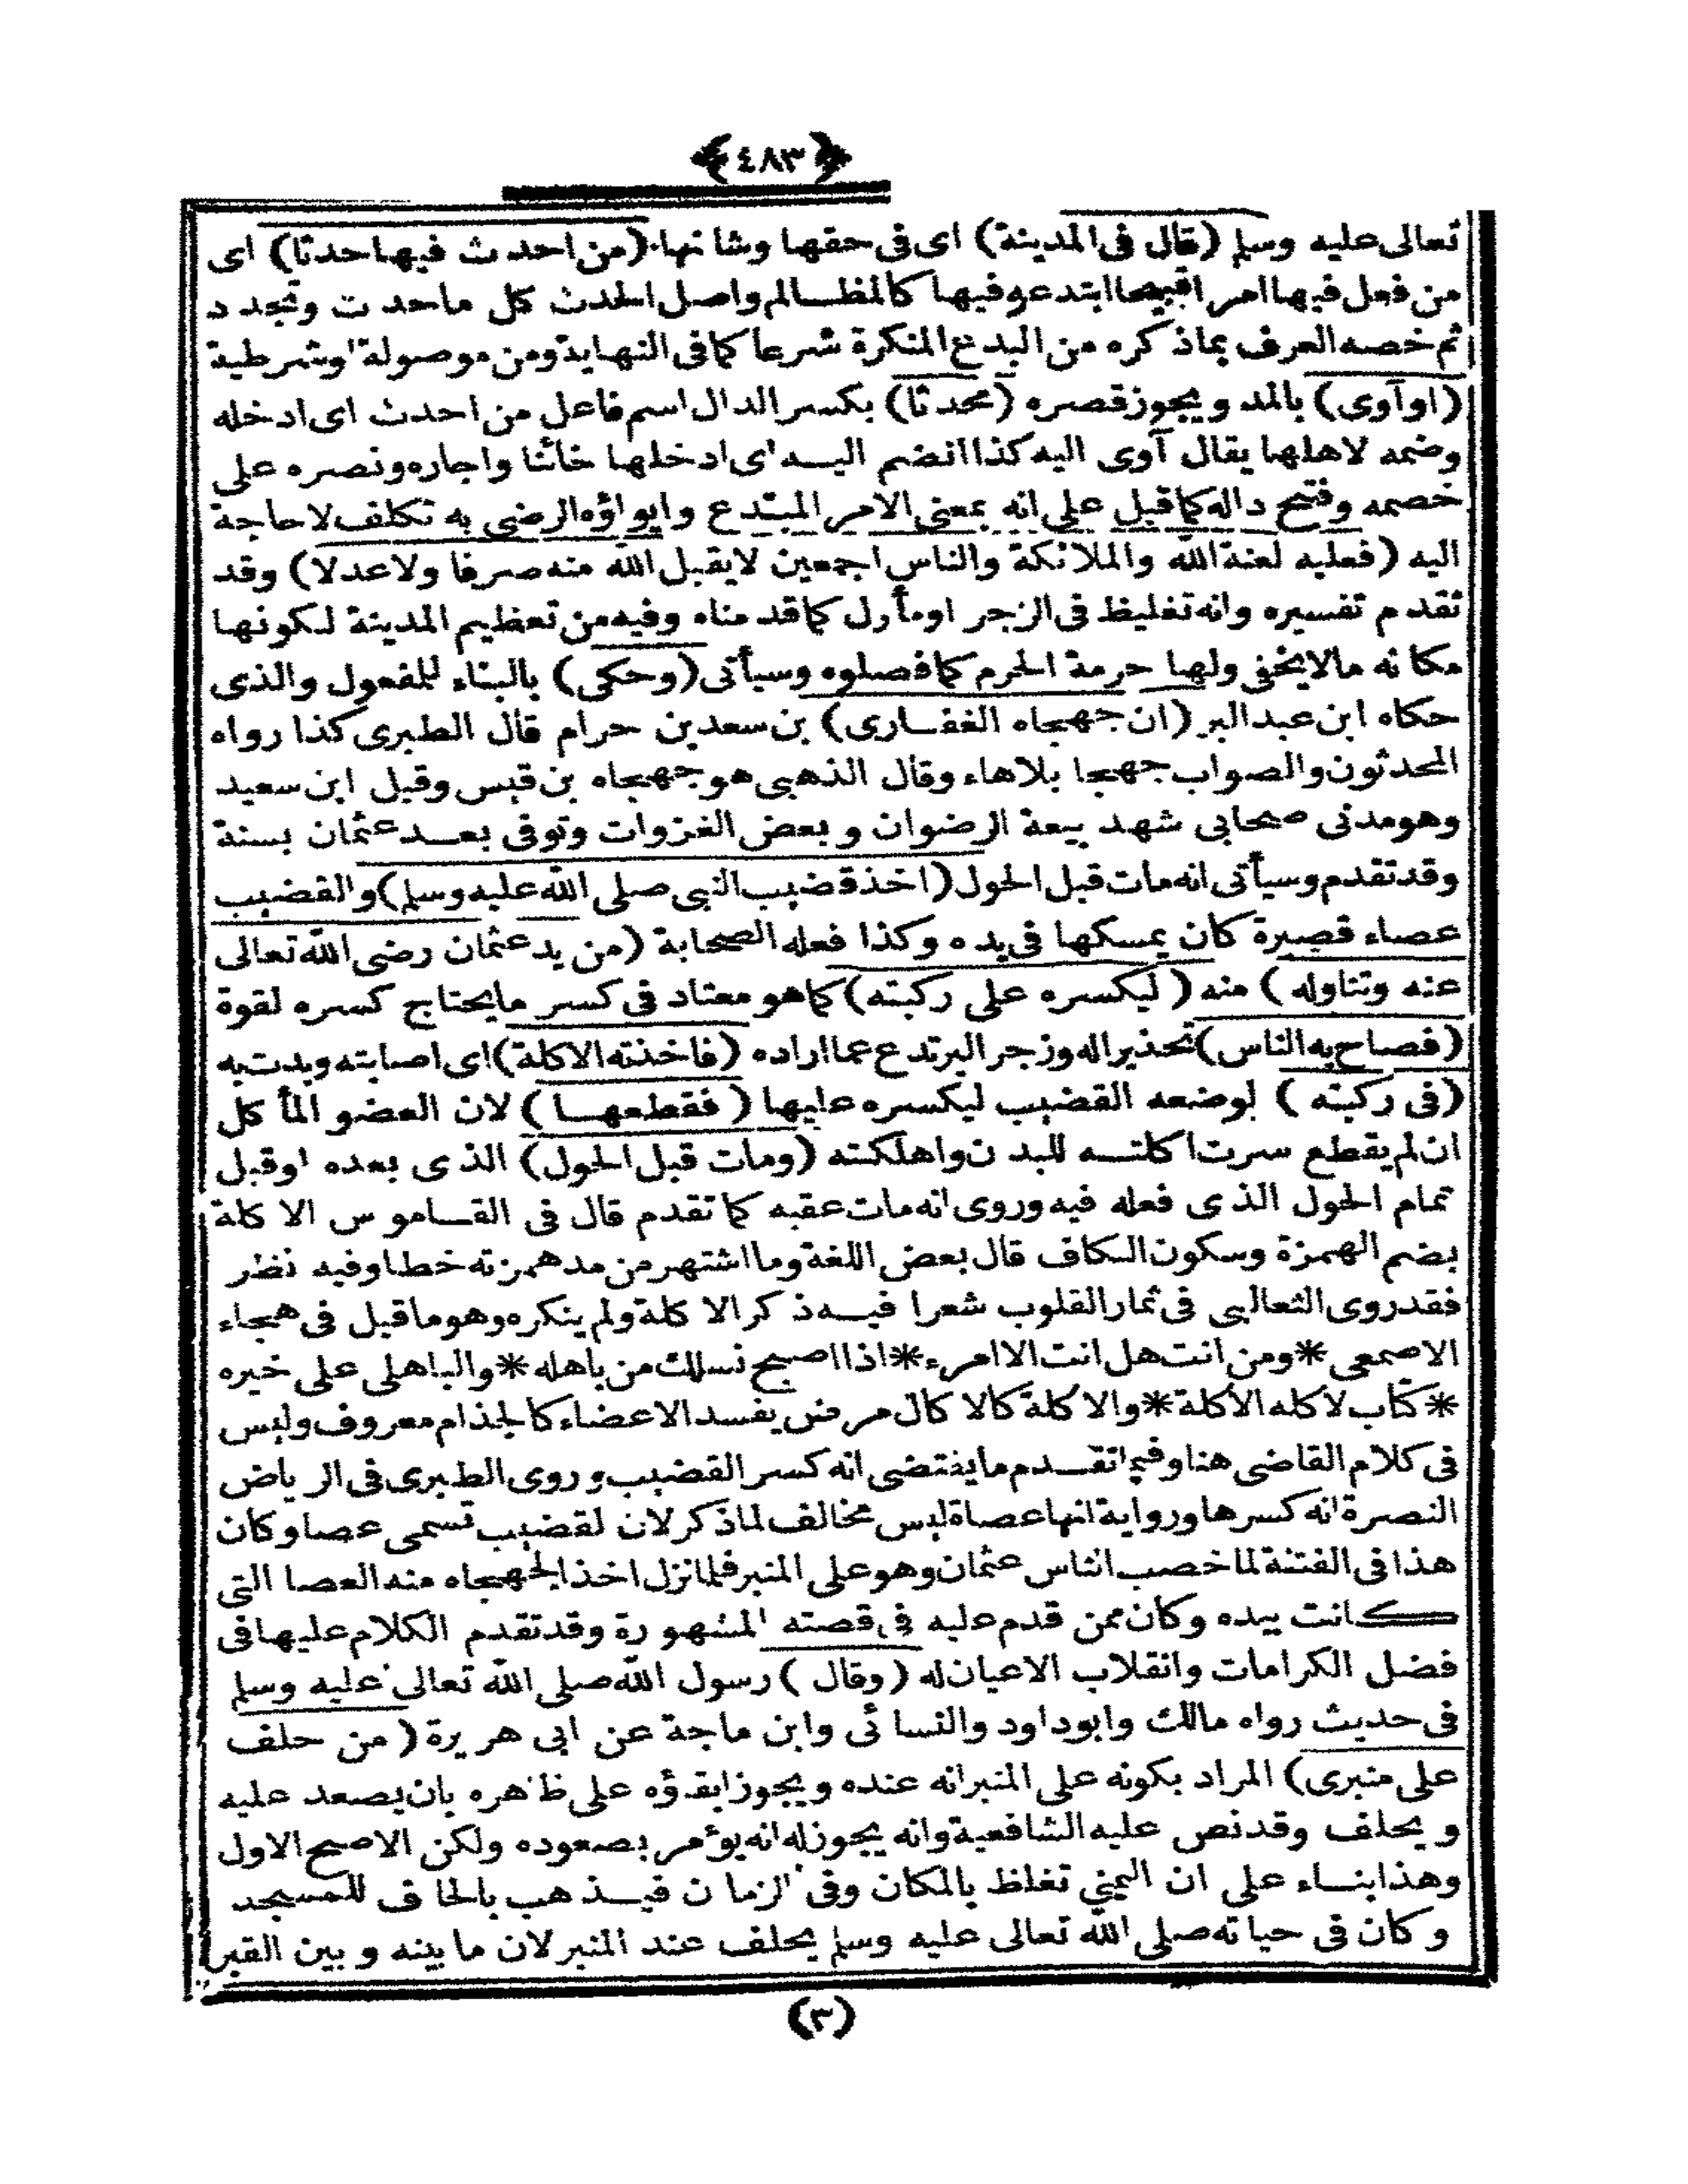 ﴿٤٨٣﴾
تعالى عليه وسلم (قال فى المدينة) اى فى حقها وشانها (من احدث فيها حدثا) اى
من فعل فيها امرا قبيحا ابتدعه وفيها كالمظالم واصل الحدث كل ماحدت وتجدد
ثم خصه العرف بماذكره من البدع المنكرة شرعا كما فى النهاية ومن موصولة اوشرطية
(اوآوى) بالمد ويجوز قصره (محدثا) بكسر الدال اسم فاعل من احدث اى ادخله
وضمه لاهلها يقال آوى اليه كذا انضم اليه اى ادخلها خائنا واجاره ونصره على
خصمه وفتح داله كما قيل على انه بمعنى الامر المبتدع وايواؤه الرضى به تكلف لاحاجة
اليه (فعليه لعنة الله والملائكة والناس اجمعين لايقبل الله منه صرفا ولاعدلا) وقد
تقدم تفسيره وانه تغليظ فى الزجر اومأول كما قدمناه وفيه من تعظيم المدينة لكونها
مكانه مالايخفى ولها حرمة الحرم كما فصلوه وسيأتى (وحكى) بالبناء للمفعول والذى
حكاه ابن عبد البر (ان جهجاه الغفارى) بن سعد بن حرام قال الطبرى كذا رواه
المحدثون والصواب جهجا بلاهاء وقال الذهبى هو جهجاه بن قيس وقيل ابن سعيد
وهو مدنى صحابى شهد بيعة الرضوان وبعض الغزوات وتوفى بعد عثمان بسنة
وقد تقدم وسيأتى انه مات قبل الحول (اخذ قضيب النبى صلى الله عليه وسلم) والقضيب
عصاء قصيرة كان يمسكها فى يده وكذا فعله الصحابة (من يد عثمان رضى الله تعالى
عنه وتناوله) منه (ليكسره على ركبته) كما هو معتاد فى كسر مايحتاج كسره لقوة
(فصاح به الناس) تحذيرا له وزجر اليرتدع عما اراده (فاخذته الاكلة) اى اصابته وبدت به
(فى ركبته) لوضعه القضيب ليكسره عليها (فقطعها) لان العضو المأكل
ان لم يقطع سرت اكلته للبدن واهلكته (ومات قبل الحول) الذى بعده اوقبل
تمام الحول الذى فعله فيه وروى انه مات عقبه كما تقدم قال فى القاموس الاكلة
بضم الهمزة وسكون الكاف قال بعض اللغة وما اشتهر من مد همزته خطا وفيه نظر
فقد روى الثعالبى فى ثمار القلوب شعرا فيه ذكر الاكلة ولم ينكره وهو ما قيل فى هجاء
الاصمعى *ومن انت هل انت الا امرء* اذا اصبح نسلك من باهله *والباهلى على خيره
*كتاب لاكله الآكلة* والاكلة كالاكال مرض يفسد الاعضاء كالجذام معروف وليس
فى كلام القاضى هنا وفيما تقدم ما يقتضى انه كسر القضيب وروى الطبرى فى الرياض
النضرة انه كسرها ورواية انها عصاة ليس مخالف لما ذكر لان لقضيب تسمى عصا وكان
هذا فى الفتنة لما خصب الناس عثمان وهو على المنبر فلما نزل اخذ الجهجاه منه العصا التى
كانت بيده وكان ممن قدم عليه فى قصته المشهورة وقد تقدم الكلام عليها فى
فضل الكرامات وانقلاب الاعيان له (وقال) رسول الله صلى الله تعالى عليه وسلم
فى حديث رواه مالك وابوداود والنسائى وابن ماجة عن ابى هريرة (من حلف
على منبرى) المراد بكونه على المنبر انه عنده ويجوز ابقؤه على ظاهره بان يصعد عليه
ويحلف وقد نص عليه الشافعية وانه يجوز له انه يؤمر بصعوده ولكن الاصح الاول
وهذا بناء على ان اليمين تغلظ بالمكان وفى الزمان فيذهب بالحاف للمسجد
وكان فى حياته صلى الله تعالى عليه وسلم يحلف عند المنبر لان ما بينه وبين القبر
(٣)